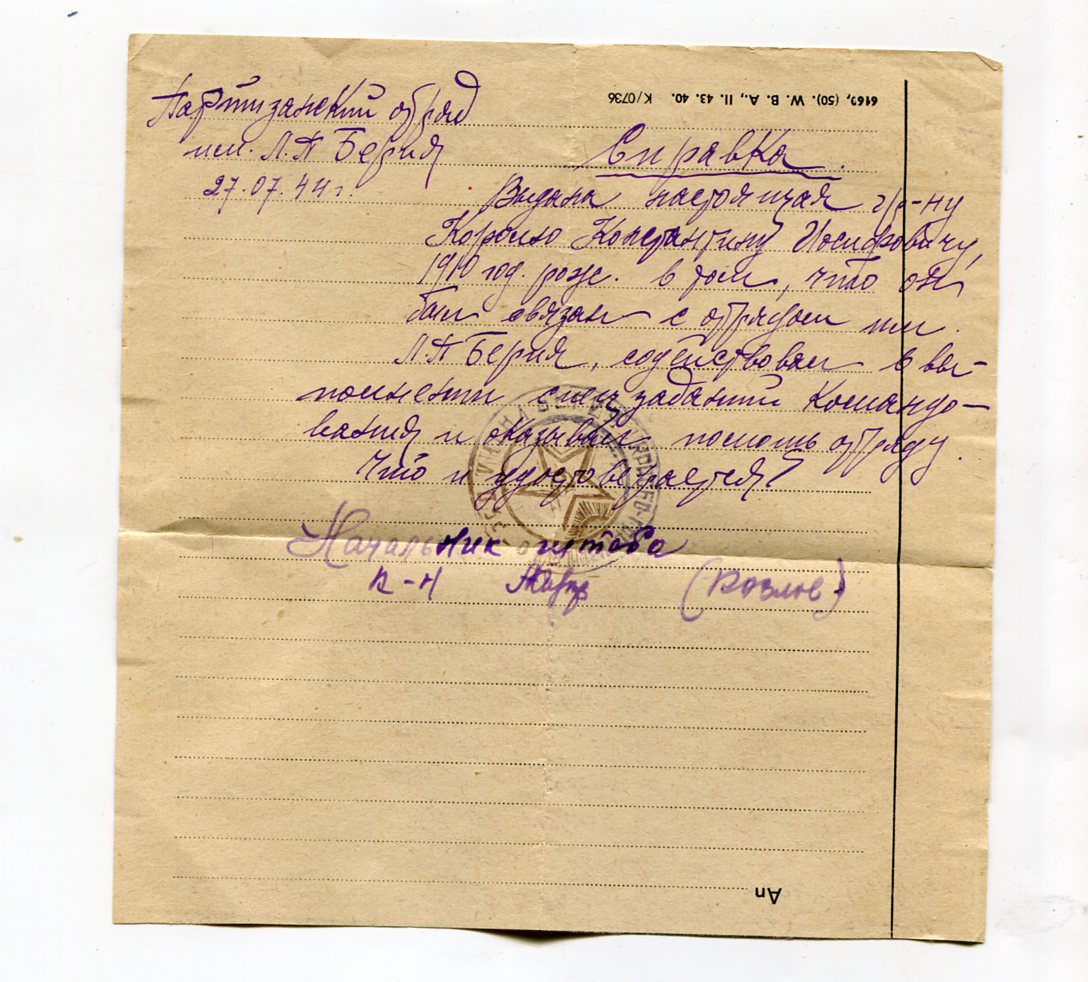 Партизанский отряд
им. Л.П Берия
27.07.44 г.
6160, (50). W. B. A., II. 43. 40. K/0736
Справка.
Выдана настоящая гр-ну
Королю Константину Иосифовичу,
1910 год. рожд. в том, что он
был связан с отрядом им.
Л.П Берия, содействовал в вы-
полнении спец заданий Командо-
вания и оказывал помощь отряду.
Что и удостоверяется
Начальник штаба
к-н (Козлов)
An